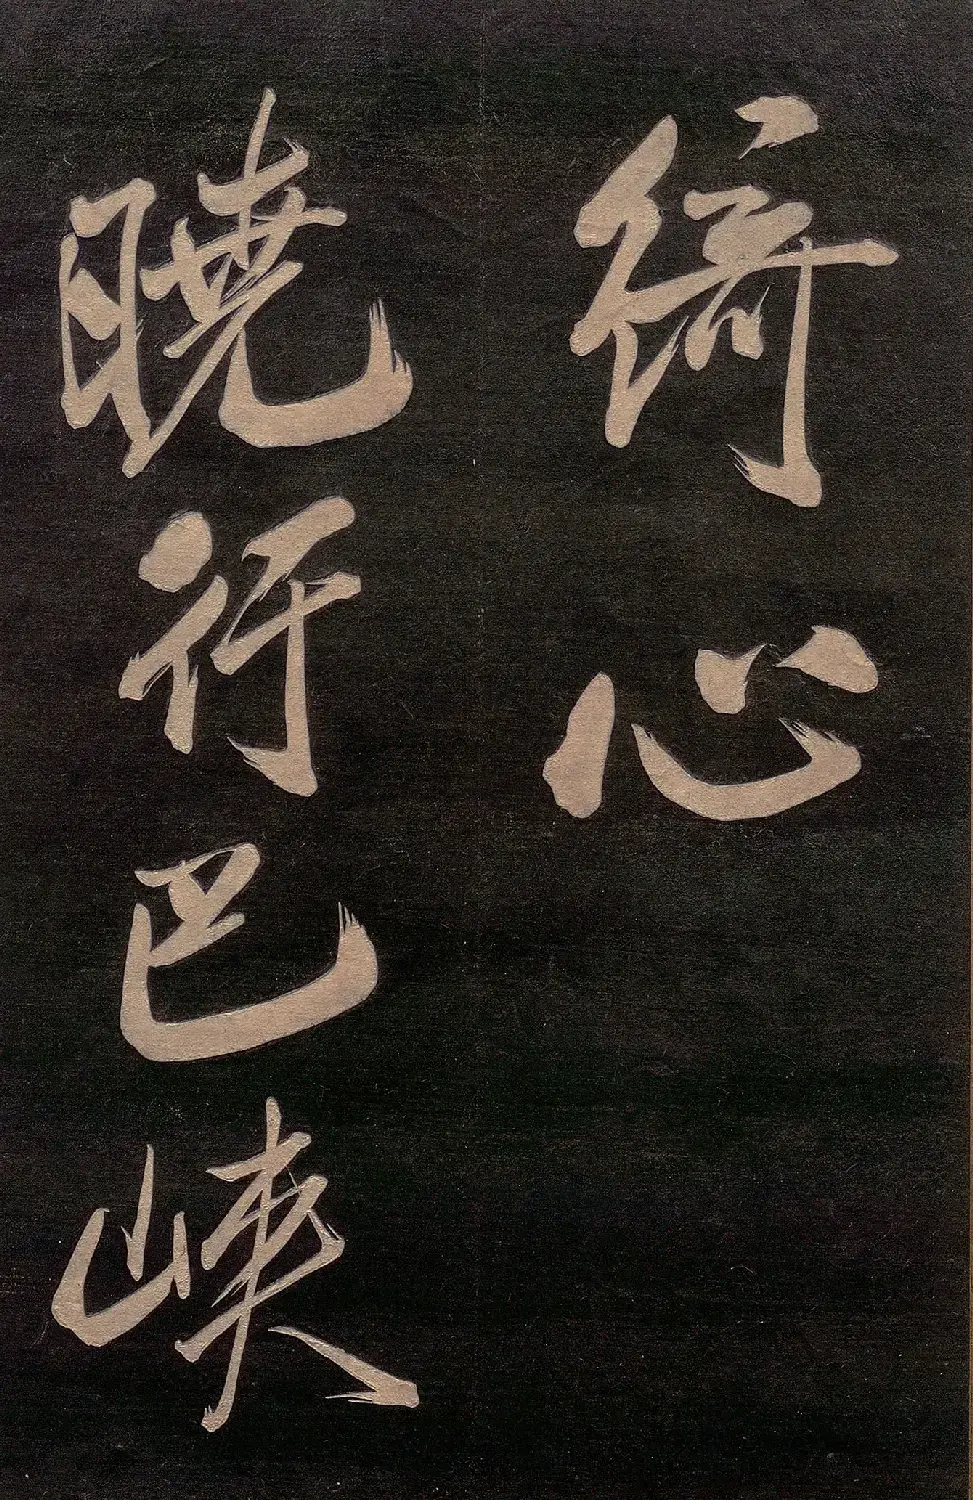 綺心
曉行巴峽